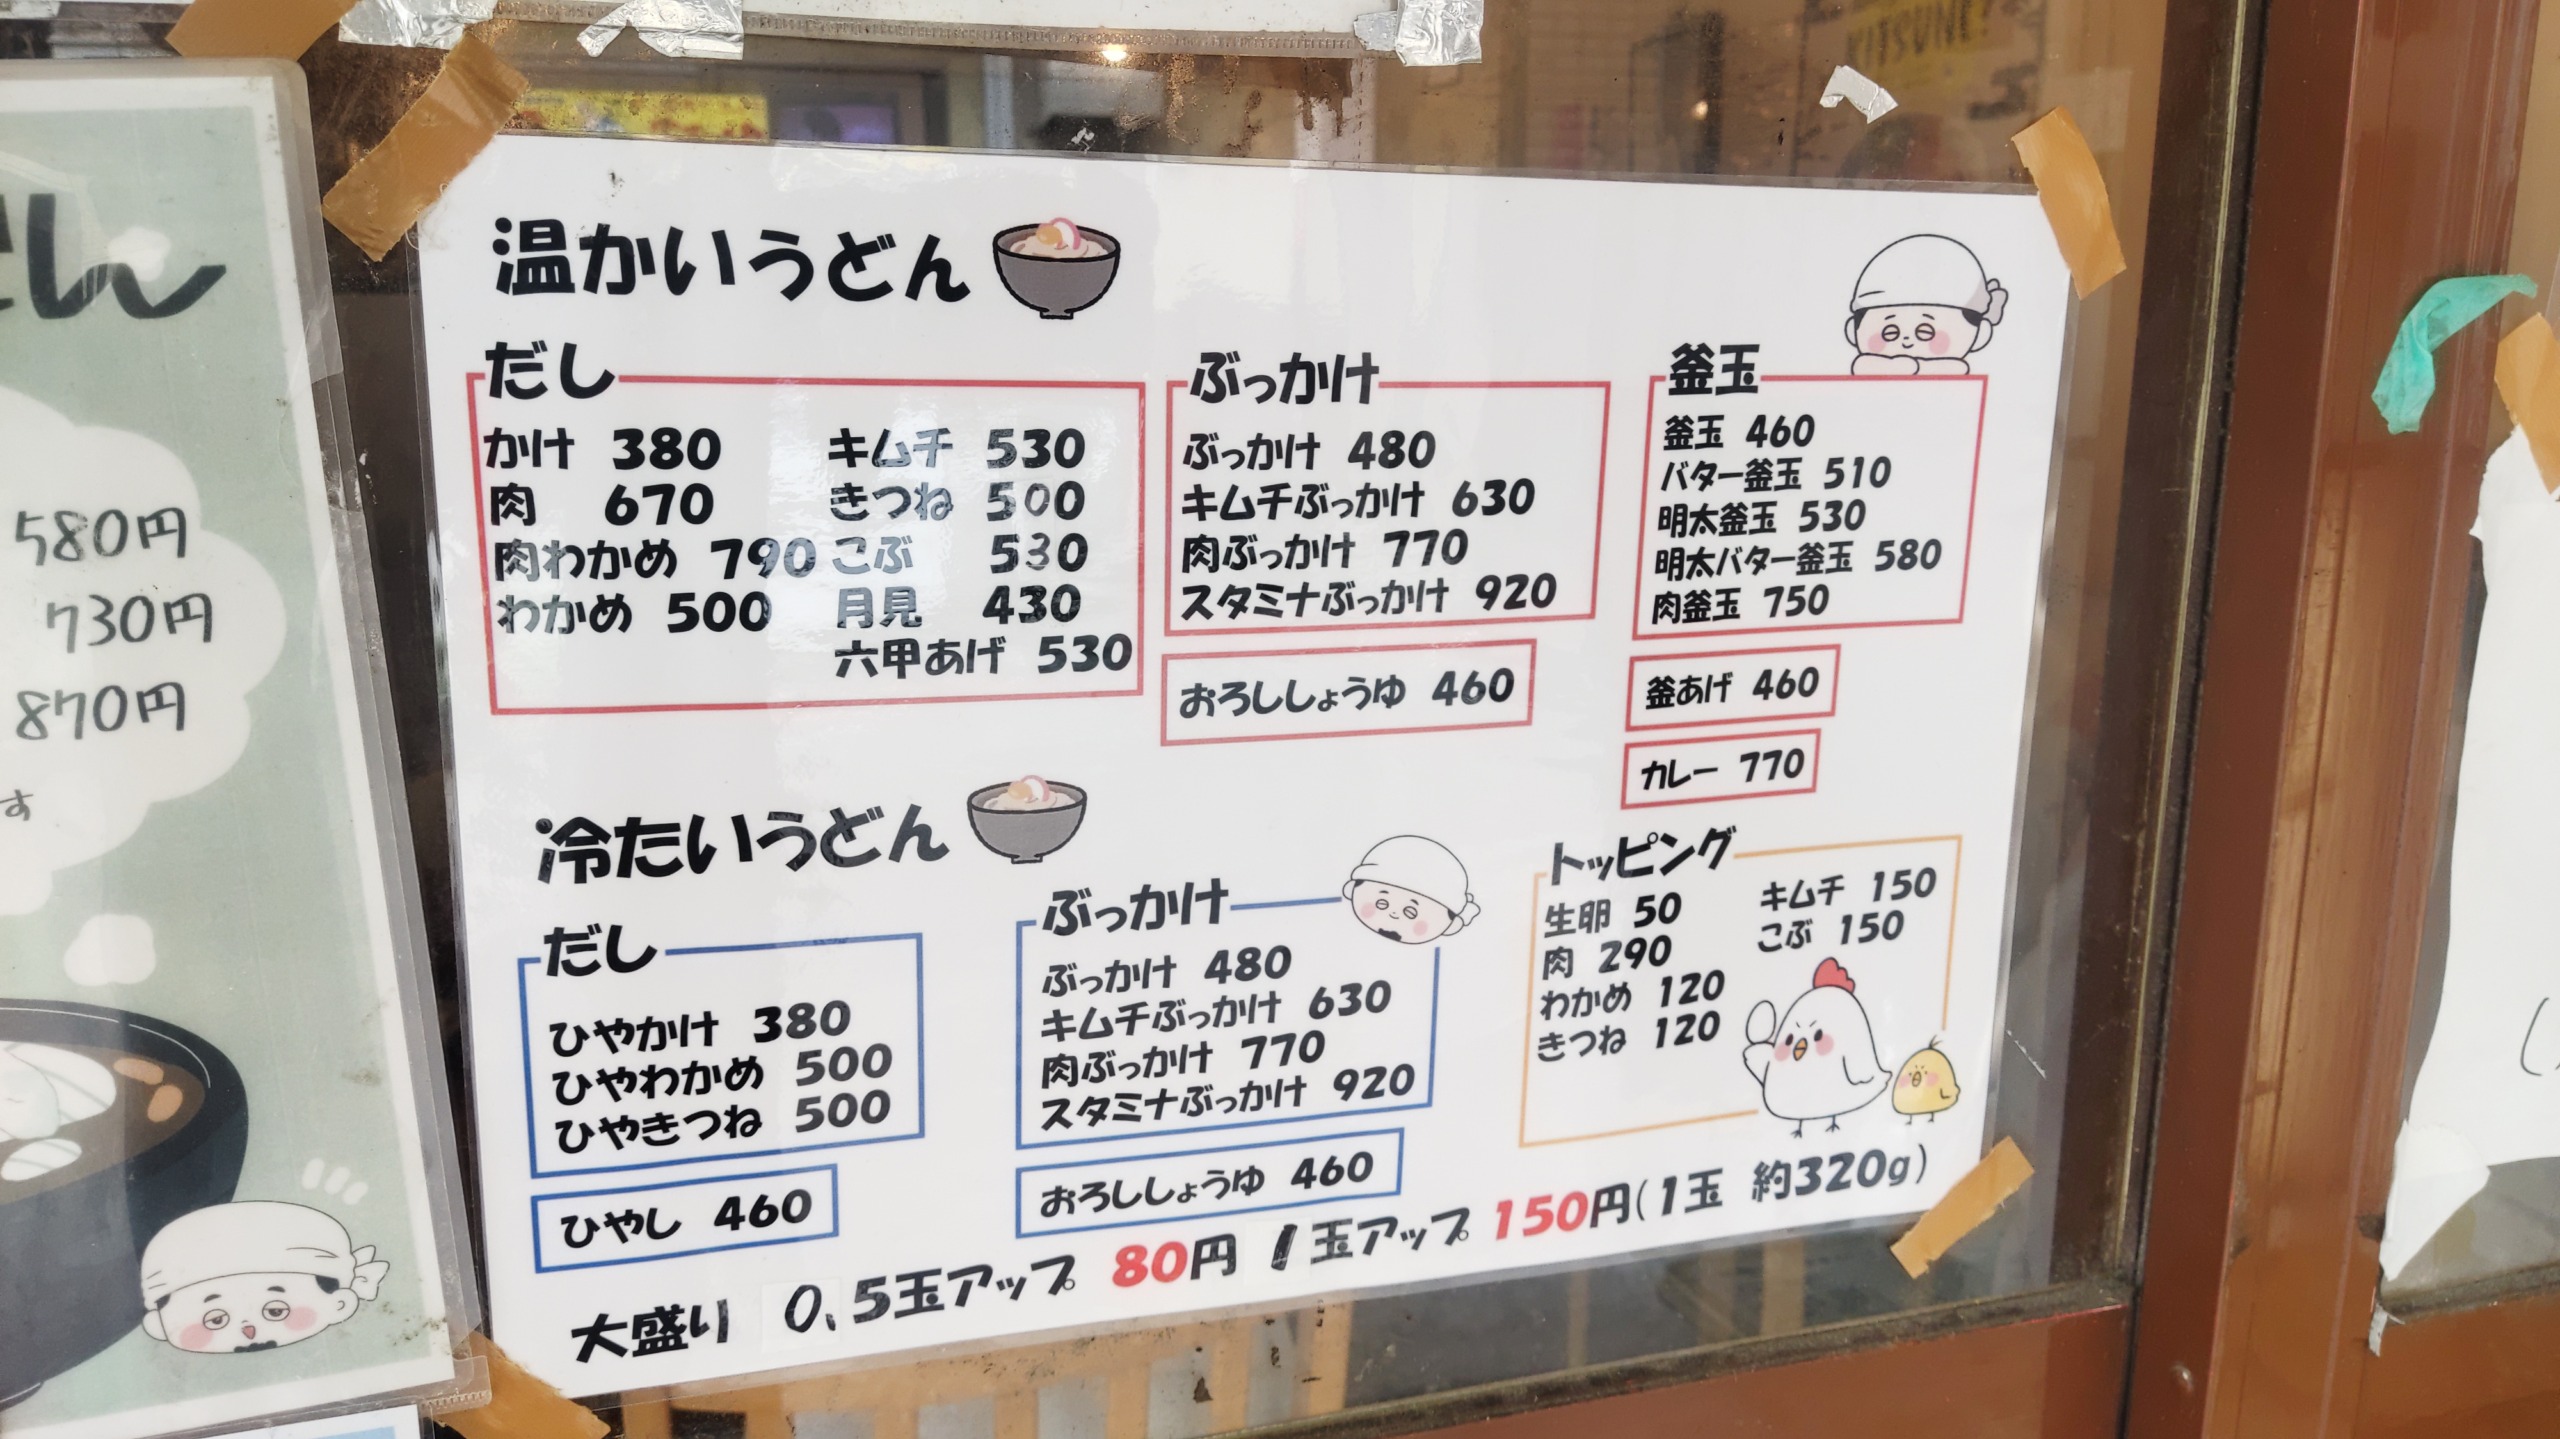 KITSUNE
うどん
580円
730円
870円
す
温かいうどん
だし
かけ 380
肉 670
肉わかめ 790
わかめ 500
キムチ 530
きつね 500
こぶ 530
月見 430
六甲あげ 530
ぶっかけ
ぶっかけ 480
キムチぶっかけ 630
肉ぶっかけ 770
スタミナぶっかけ 920
おろししょうゆ 460
釜玉
釜玉 460
バター釜玉 510
明太釜玉 530
明太バター釜玉 580
肉釜玉 750
釜あげ 460
カレー 770
冷たいうどん
だし
ひやかけ 380
ひやわかめ 500
ひやきつね 500
ひやし 460
ぶっかけ
ぶっかけ 480
キムチぶっかけ 630
肉ぶっかけ 770
スタミナぶっかけ 920
おろししょうゆ 460
トッピング
生卵 50
肉 290
わかめ 120
きつね 120
キムチ 150
こぶ 150
大盛り 0.5玉アップ 80円 1玉アップ 150円(1玉 約320g)